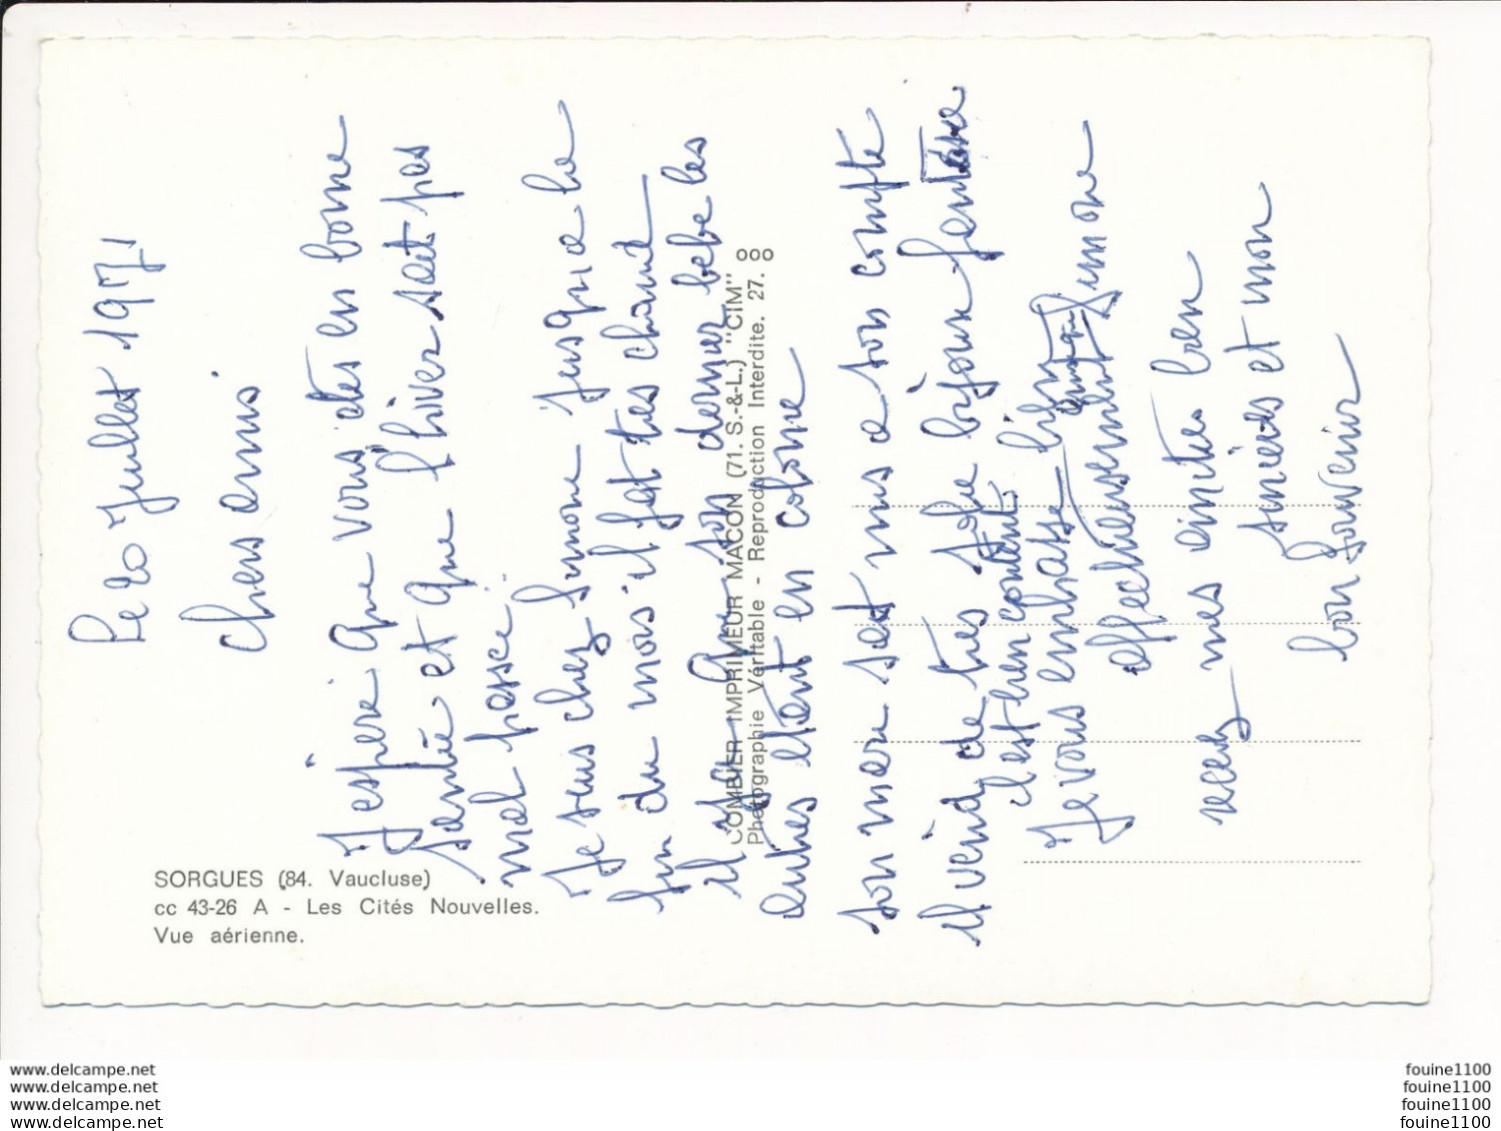 Le 20 Juillet 1971
Chers amis
J'espère que vous êtes en bonne
santée et que l'hiver s'ait pas
mal passé.
Je suis chez Simone jusqu'a la
fin du mois il fait très chaud
il y a que son dernier bebe les
autres étant en colonie
son mari s'est mis a son compte
il vend de très jolie bijoux fantaisie
il est bien content.
Je vous embrasse bien
affectueusement Simone
recevez mes amitiés bien
sincères et mon
bon Souvenir
SORGUES (84. Vaucluse)
cc 43-26 A - Les Cités Nouvelles.
Vue aérienne.
COMBIER IMPRIMEUR MACON (71. S.-&-L.) "CIM"
Photographie Véritable - Reproduction Interdite. 27. 8
www.delcampe.net
www.delcampe.net
www.delcampe.net
www.delcampe.net
fouine1100
fouine1100
fouine1100
fouine1100